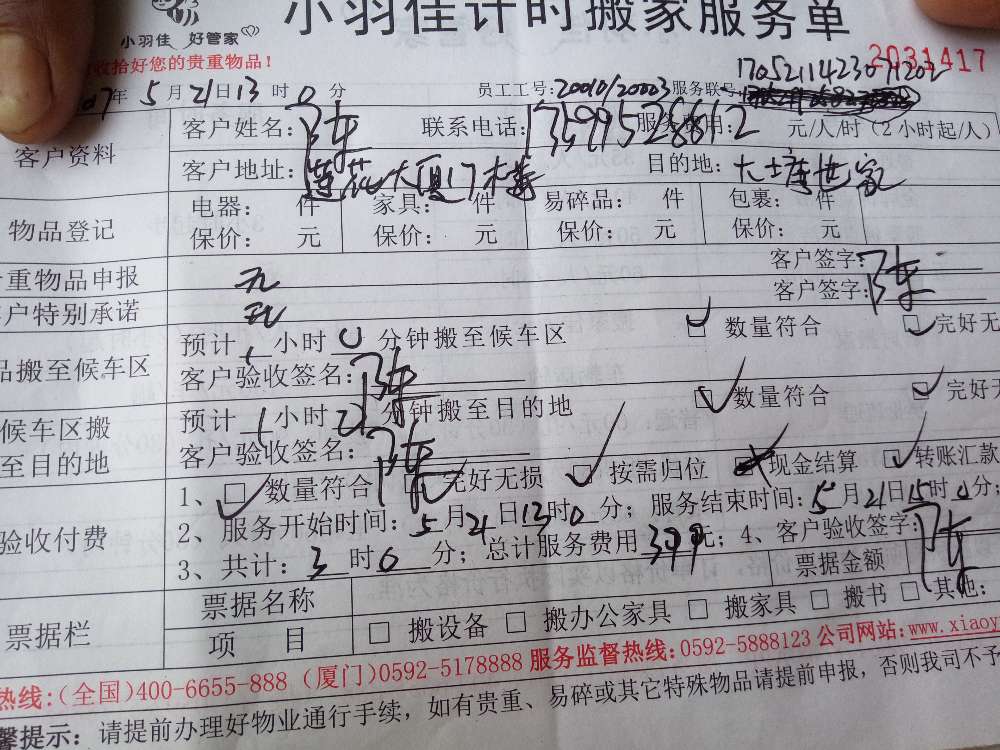 小羽佳计时搬家服务单
小羽佳 好管家
收拾好您的贵重物品！
2031417
年5月21日13时0分 员工工号：20010/20003 服务联号
客户资料
客户姓名：陈 联系电话： 服务费用：2 元/人/时（2小时起/人）
客户地址：莲花大厦门 目的地：大士唐世家
物品登记
电器： 件 家具： 件 易碎品： 件 包裹： 件
保价： 元 保价： 元 保价： 元 保价： 元
重物品申报 无 客户签字：陈
户特别承诺 无 客户签字：
品搬至候车区
预计1小时0分钟搬至候车区 数量符合 完好无
客户验收签名：陈
候车区搬至目的地
预计1小时 分钟搬至目的地 数量符合 完好无
客户验收签名：陈
验收付费
1、数量符合 完好无损 按需归位 现金结算 转账汇款
2、服务开始时间：5月21日13时0分；服务结束时间：5月21日15时0分；
3、共计：3时0分；总计服务费用399元；4、客户验收签字：陈
票据栏
票据名称 票据金额
项目 搬设备 搬办公家具 搬家具 搬书 其他：
热线：（全国）400-6655-888（厦门）0592-5178888 服务监督热线：0592-5888123 公司网站：www.xiaoy
馨提示：请提前办理好物业通行手续，如有贵重、易碎或其它特殊物品请提前申报，否则我司不予